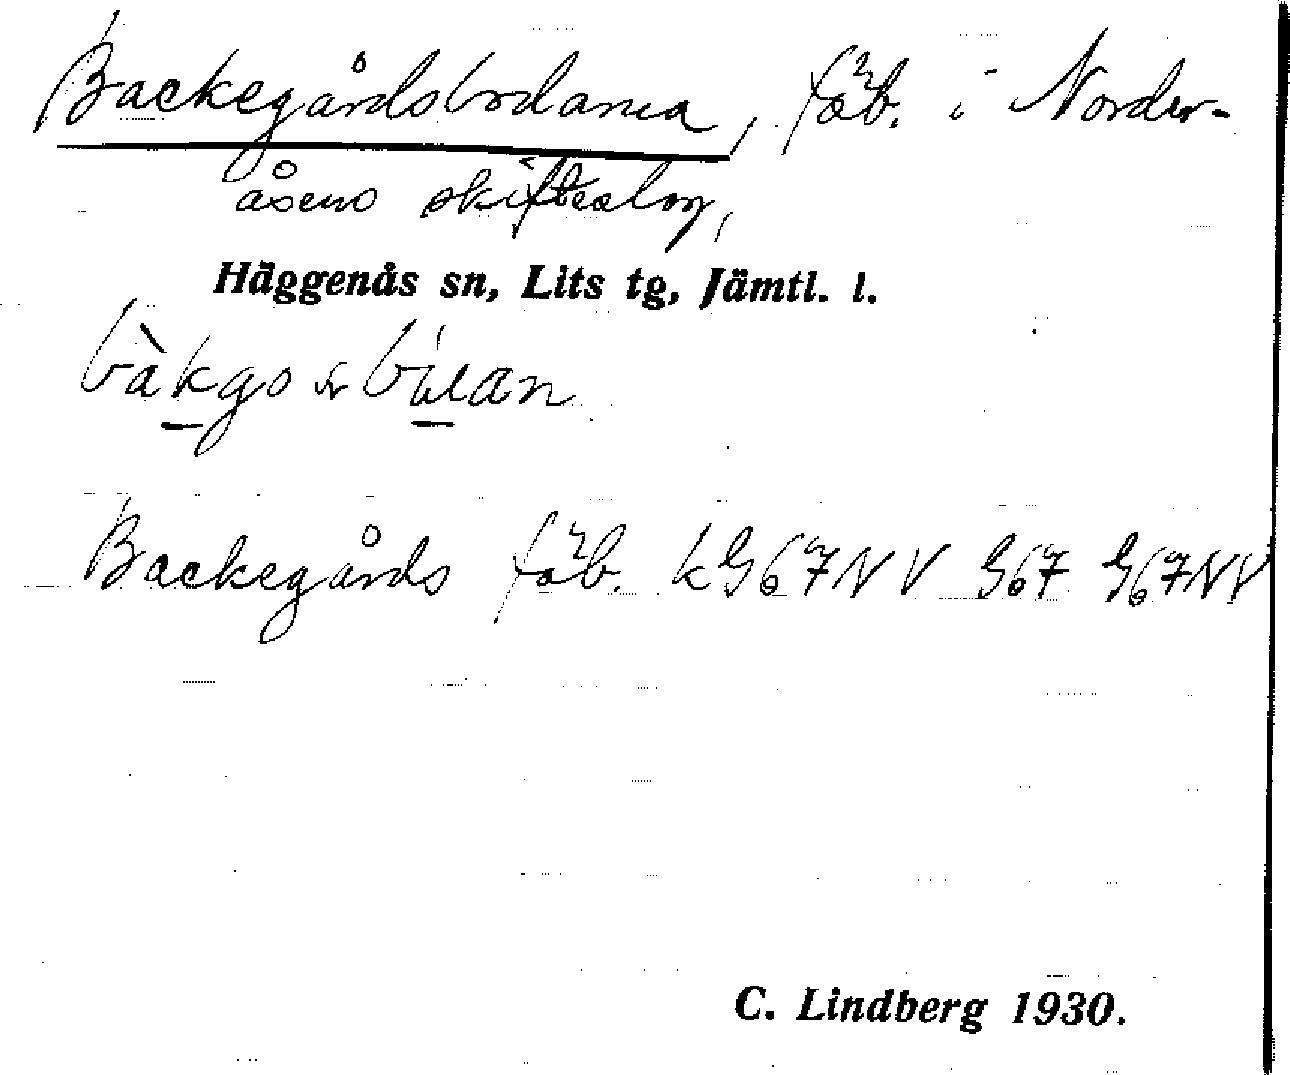 Backegårdsbodarna, fäb. i Norder-
åsens skifteslag,
Häggenås sn, Lits tg, Jämtl. l.
Backegårds fäb. k G67NV G67 G67NV
C. Lindberg 1930.